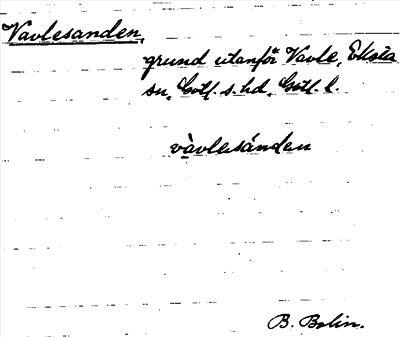 Vavlesanden,
grund utanför Vavle, Eksta
sn, Gotl. s. hd, Gotl. l.
vàvlesánden
B. Bolin.